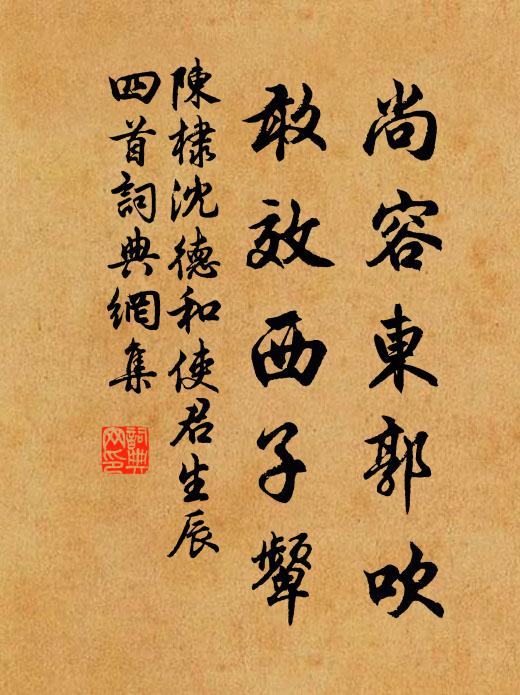 尚容東郭吹
敢效西子顰
陳棣沈德和使君生辰
四首詞典網集
詞典
网印